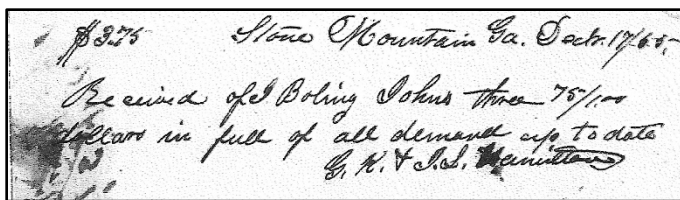 $3.75 Stone Mountain Ga. Decr. 17/65.
Received of J Boling Johns three 75/100
dollars in full of all demand up to date
G. K. & J. L. Hamilton